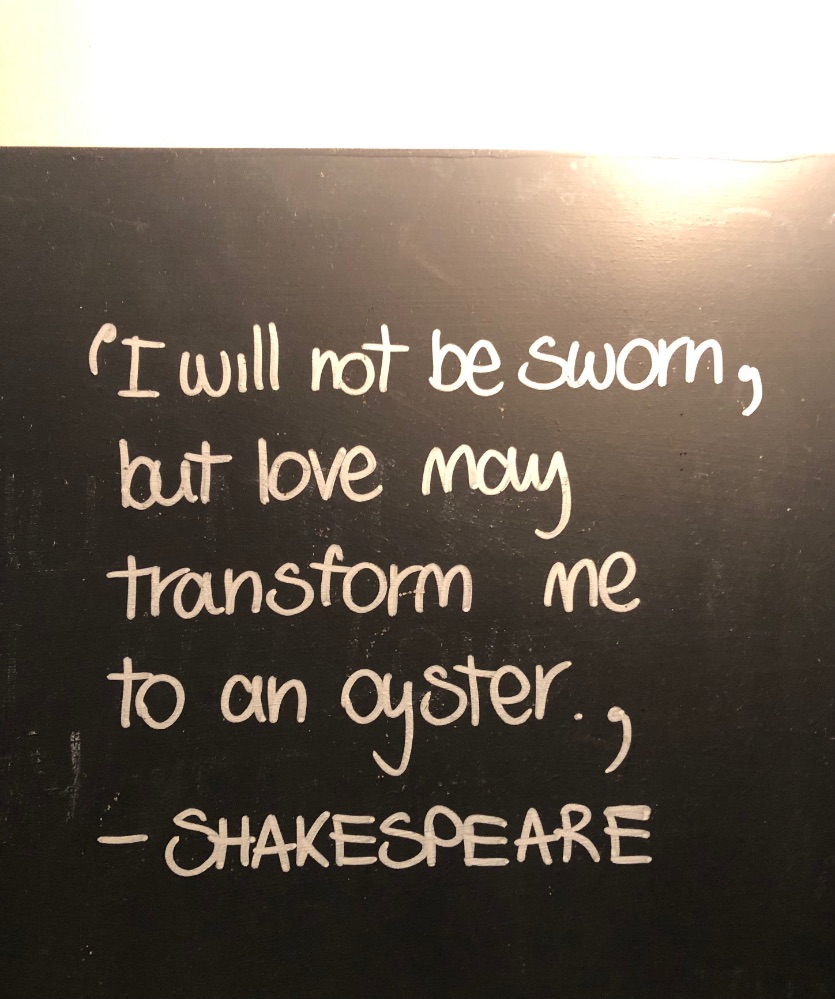 'I will not be sworn,
but love may
transform me
to an oyster.,
- SHAKESPEARE